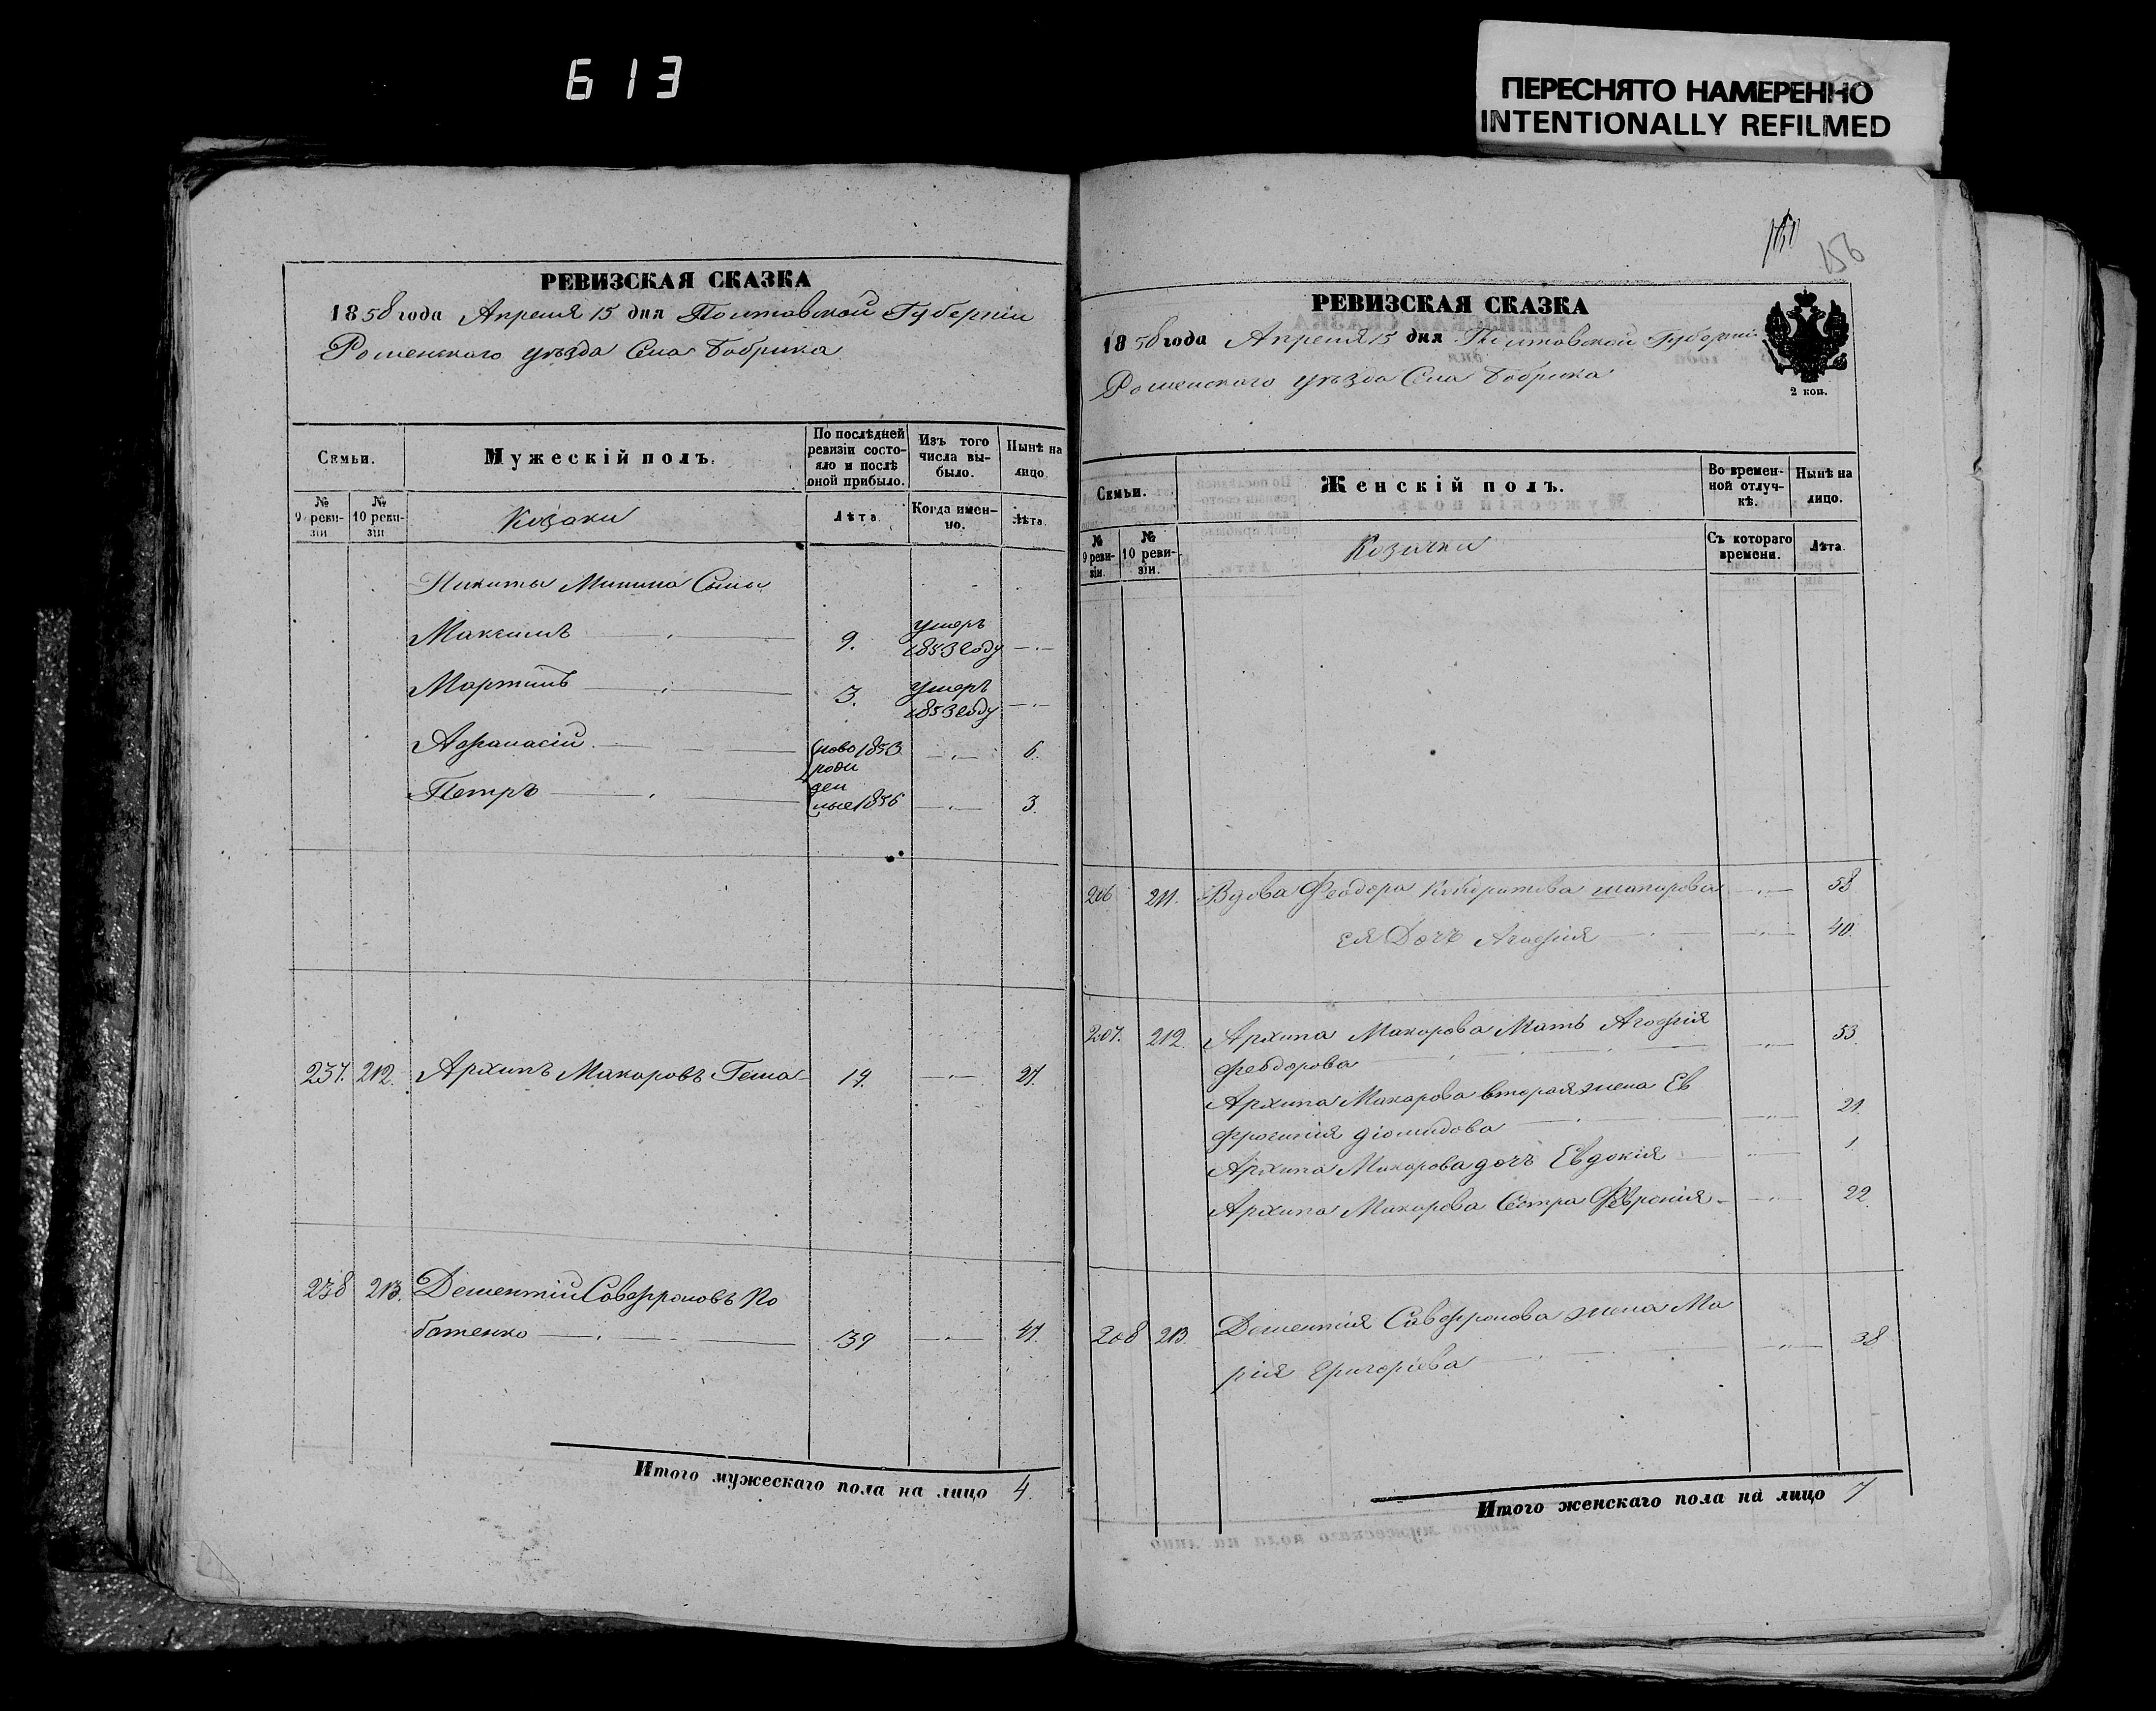 613
ПЕРЕСНЯТО НАМЕРЕННО
INTENTIONALLY REFILMED
РЕВИЗСКАЯ СКАЗКА
1858 года Апреля 15 дня Полтавской Губерніи
Роменского уѣзда Села Бобрика
Семьи.
Мужескій полъ.
По послѣдней ревизіи состояло и послѣ оной прибыло.
Изъ того числа выбыло.
Нынѣ на лицо.
№ 9 ревизіи
№ 10 ревизіи
Козаки
Лѣта.
Когда именно.
Лѣта.
Никиты Минина Сыны
Максимъ 9. умеръ 1853 году
Мартинъ 3. умеръ 1853 году
Афанасій ново 1853 6.
роди
Петръ ден ные 1856 3.
237. 212. Архипъ Макаровъ 19. 27.
238 213. Дементій Савефроновъ Ко
батенко 39 47.
Итого мужескаго пола на лицо 4.
156
РЕВИЗСКАЯ СКАЗКА
1858 года Апреля 15 дня Полтавской Губерніи
Роменского уѣзда Села Бобрика
2 коп.
Семьи.
Женскій полъ.
Во временной отлучкѣ.
Нынѣ на лицо.
№ 9 ревизіи.
№ 10 ревизіи.
Козачки
Съ котораго времени.
Лѣта.
206 211. Вдова Феодора 58
ея Дочь Агафія 40.
207. 212. Архипа Макарова Мать Агафія 53.
Феодорова
Архипа Макарова вторая жена Ев
фросинія Діомидова 21.
Архипа Макарова дочь Евдокія 1
Архипа Макарова Сестра Феврония 22.
208 213. Дементія Савефронова жена Ма
рія Григоріева 38
Итого женскаго пола на лицо 7